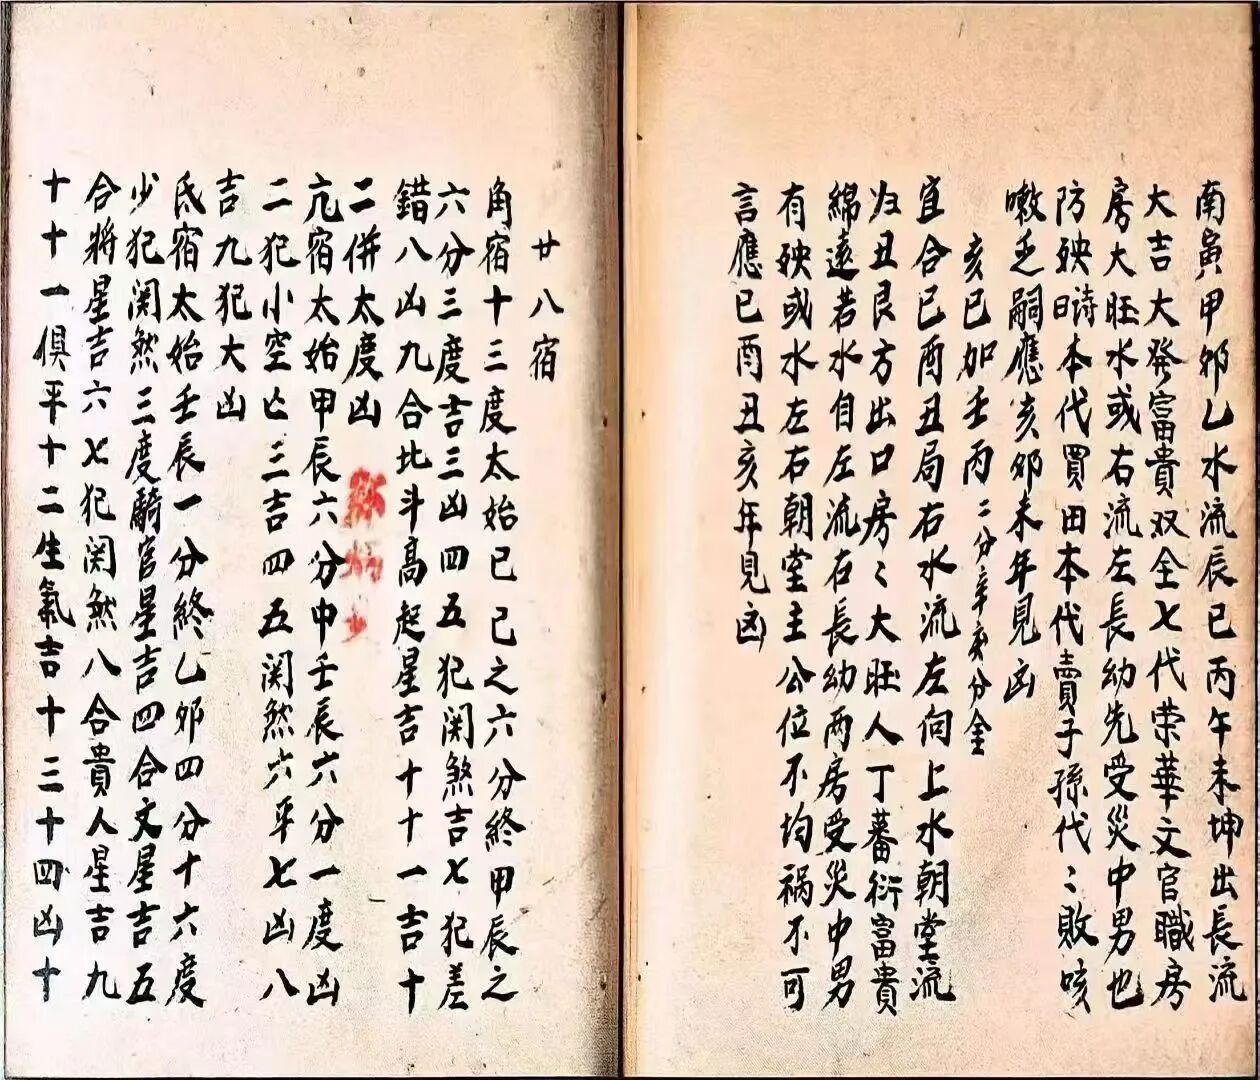 南寅甲卯乙水流辰巳丙午未坤出長流
大吉大發富貴双全七代荣華文官職房
房大旺水或右流左長幼先受災中男也
防殃詩曰本代買田本代賣子孫代〻敗咳
嗽乏嗣應亥卯未年見凶
亥巳加壬丙二分辛亥分金
宜合巳酉丑局右水流左向上水朝堂流
归丑艮方出口房〻大旺人丁蕃衍富貴
綿遠若水自左流右長幼两房受災中男
有殃或水左右朝堂主公位不均祸不可
言應巳酉丑亥年見凶
廿八宿
角宿十三度太始巳巳之六分終甲辰之
六分三度吉三凶四五犯関煞吉七犯差
錯八凶九合比斗高起星吉十十一吉十
二併太度凶
亢宿太始甲辰六分中壬辰六分一度凶
二犯小空亡三吉四五関煞六平七凶八
吉九犯大凶
氐宿太始壬辰一分終乙卯四分十六度
少犯関煞三度騎官星吉四合文星吉五
合将星吉六七犯関煞八合貴人星吉九
十十一俱平十二生氣吉十三十四凶十